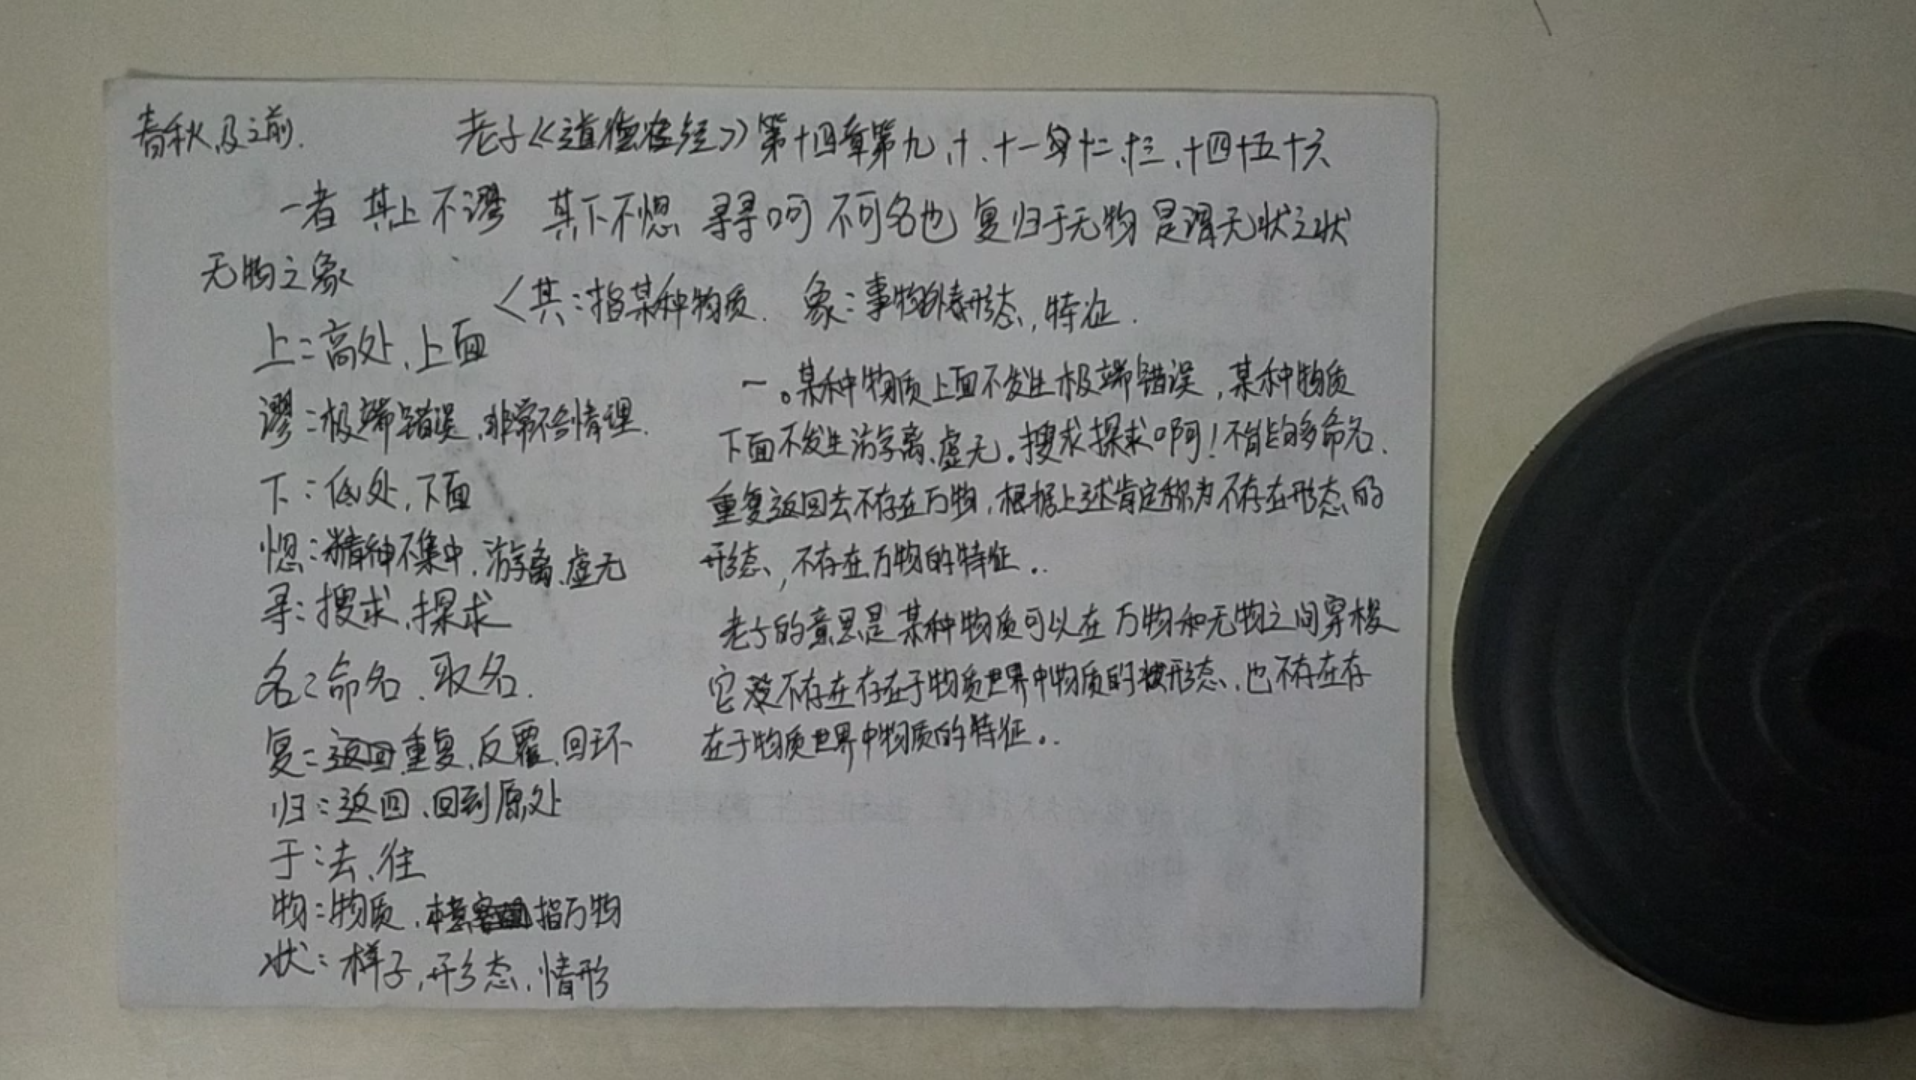 春秋及之前.
老子《道德经》第十四章第九、十、十一句十二、十三、十四十五十六
一者 其上不谬 其下不惚 寻寻呵 不可名也 复归于无物 是谓无状之状
无物之象
<其:指某种物质. 象:事物外表形态,特征.
上:高处、上面
谬:极端错误,非常不合情理.
下:低处,下面
惚:精神不集中,游离、虚无
寻:搜求、探求
名:命名、取名.
复:返回重复、反覆、回环
归:返回、回到原处
于:去、往
物:物质,本意指万物
状:样子,形态,情形
一。某种物质上面不发生极端错误,某种物质
下面不发生游离、虚无。搜求探求啊!不能够命名.
重复返回去不存在万物,根据上述肯定称为不存在形态的
形态,不存在万物的特征。.
老子的意思是某种物质可以在万物和无物之间穿梭
它不存在存在于物质世界中物质的形态,也不存在存
在于物质世界中物质的特征。.